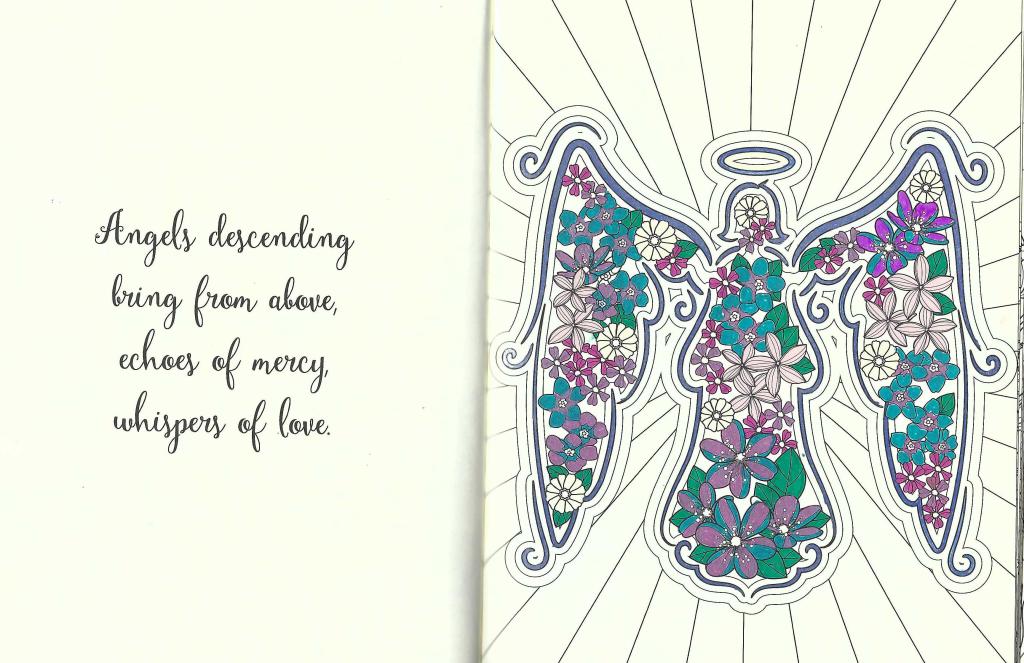 Angels descending
bring from above,
echoes of mercy,
whispers of love.